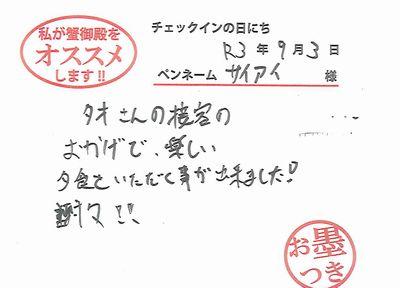 私が蟹御殿を
オススメ
します!!
チェックインの日にち
R3年9月3日
ペンネーム サイアイ 様
タオさんの接客の
おかげで、楽しい
夕食をいただく事が出来ました!
謝々!!
お墨
つき